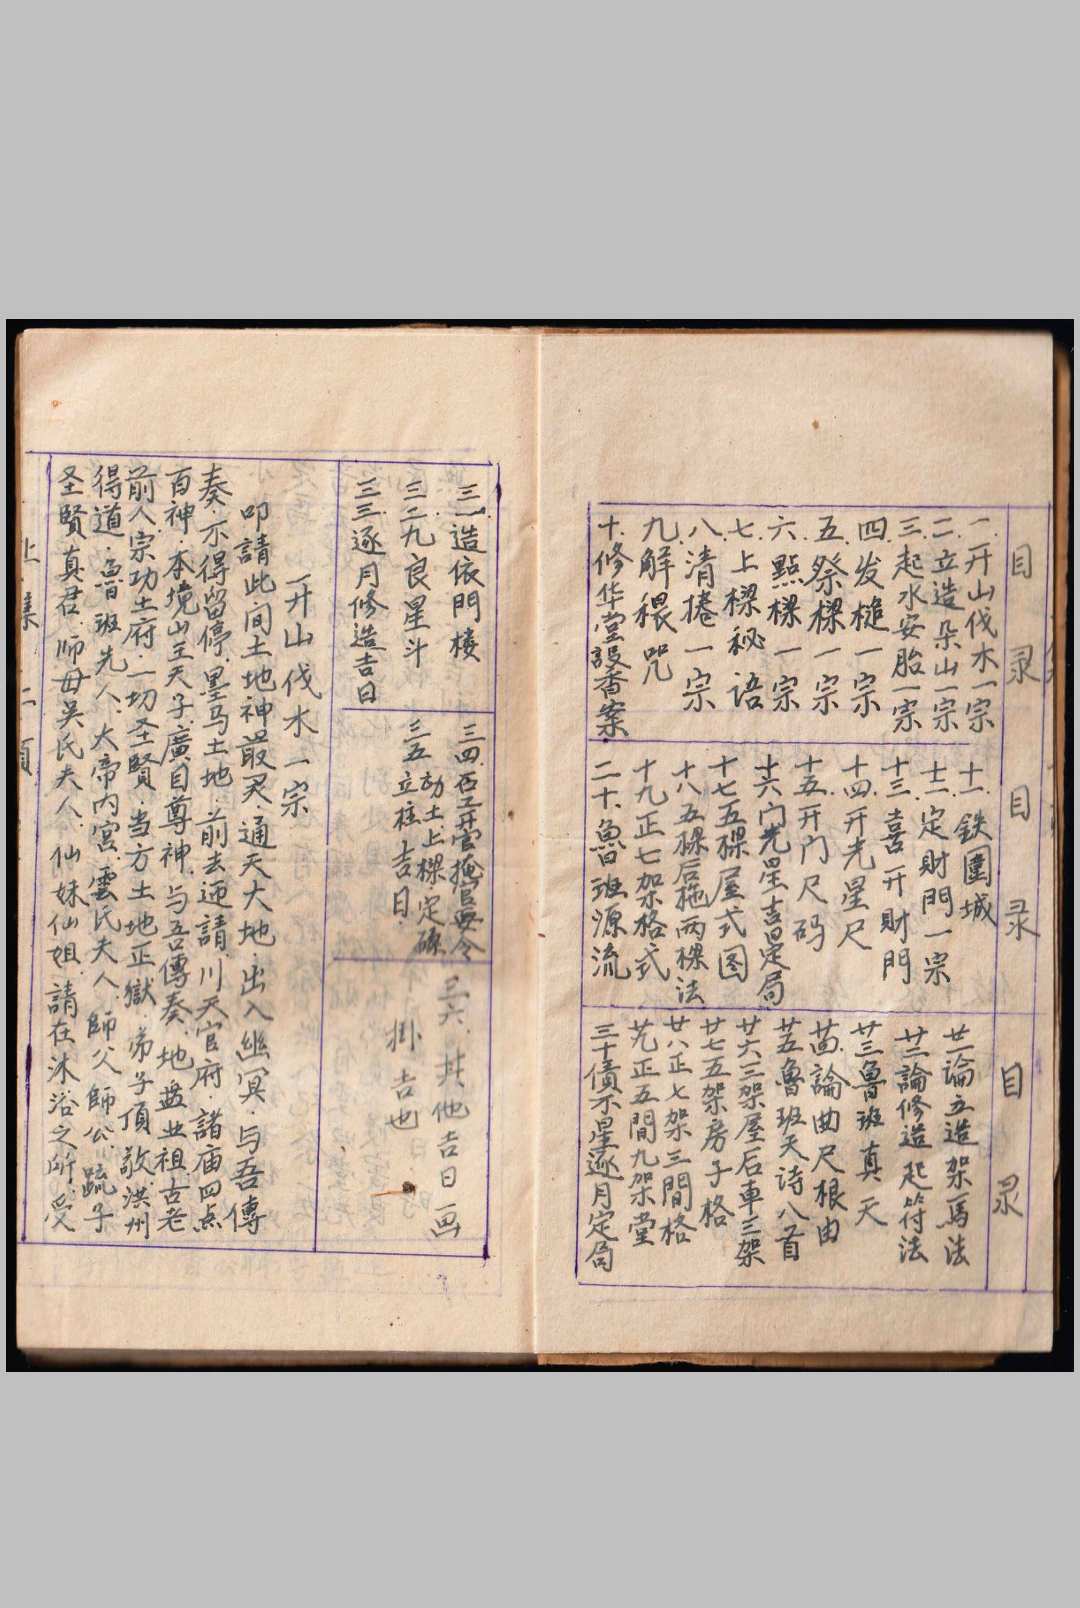 目录
目录
目录
一.开山伐木一宗
二.立造朵山一宗
三.起水安胎一宗
四.发槌一宗
五.祭樑一宗
六.點樑一宗
七.上樑秘语
八.清捲一宗
九.解穏咒
十.修华堂設香案
十一.鉄圍城
十二.定財門一宗
十三.喜开財門
十四.开光星尺
十五.开门尺码
十六.门光星吉日定局
十七五樑屋式图
十八五樑后拖两樑法
十九正七架格式
二十.魯班源流
廿一論立造架馬法
廿二論修造起符法
廿三魯班真天
廿四論曲尺根由
廿五魯班天诗八首
廿六三架屋后車三架
廿七五架房子格
廿八正七架三間格
廿九正五間九架堂
三十債不星逐月定局
三一.造依門楼
三二.九良星斗
三三.逐月修造吉日
三四.石工开官掩官要令
三五动土上樑定磉
立柱吉日.
三六.共他吉日画
掛吉也
一开山伐木一宗
叩請此间土地神最灵.通天大地.出入幽冥.与吾傳
奏.不得留停.墨马土地.前去迎請.川天官府.諸庙四点
百神.本境山主天子.廣目尊神.与吾傳奏.地盘业祖.古老
前人.宗功土府.一切圣賢.当方土地正獄.弟子頂敬.洪州
得道.魯班先人.大帝内宮.雲氏夫人.師父師公.蹴子
圣賢真君.师母吴氏夫人.仙妹仙姐.請在沐浴之所.受
上集二頁